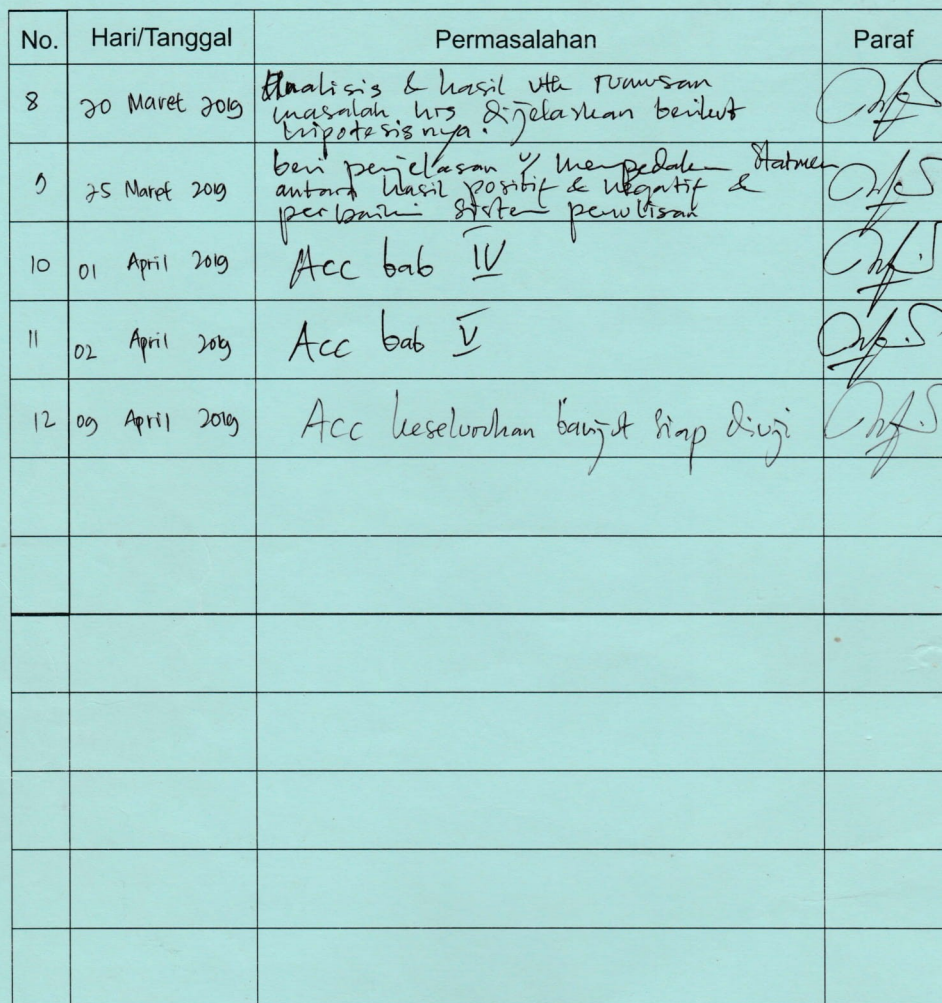 No. Hari/Tanggal Permasalahan Paraf
8 20 Maret 2019 Analisis & hasil utk rumusan
masalah hrs dijelaskan berikut
hipotesisnya.
9 25 Maret 2019 beri penjelasan Statmen
antara hasil positif & negatif &
perbaiki sistem penulisan
10 01 April 2019 Acc bab IV
11 02 April 2019 Acc bab V
12 09 April 2019 Acc keseluruhan siap diuji